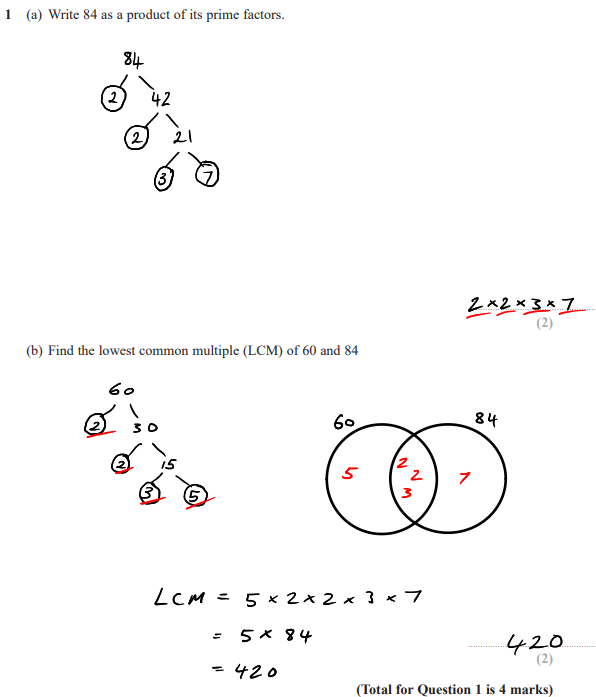 1 (a) Write 84 as a product of its prime factors.
84
2 42
2 21
3 7
2 × 2 × 3 × 7
(2)
(b) Find the lowest common multiple (LCM) of 60 and 84
60
2 30
2 15
3 5
60 84
5 2 2 3 7
LCM = 5 × 2 × 2 × 3 × 7
= 5 × 84
= 420
420
(2)
(Total for Question 1 is 4 marks)